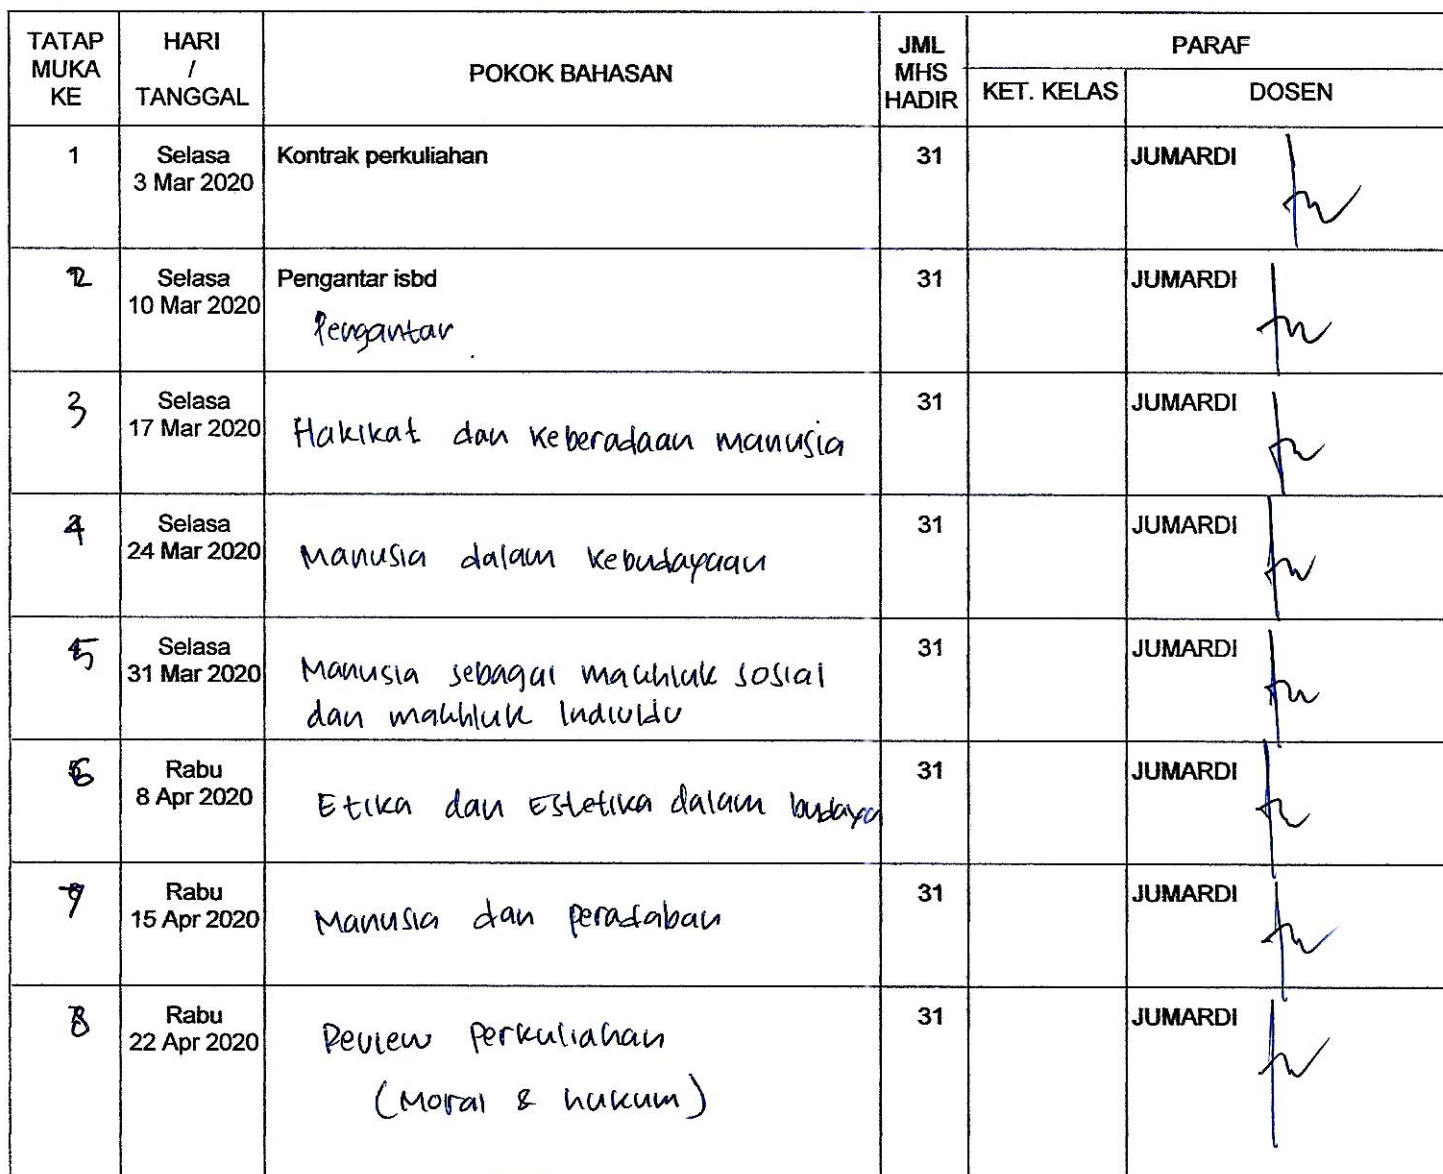 TATAP MUKA KE HARI / TANGGAL POKOK BAHASAN JML MHS HADIR PARAF
KET. KELAS DOSEN
1 Selasa 3 Mar 2020 Kontrak perkuliahan 31 JUMARDI
2 Selasa 10 Mar 2020 Pengantar isbd 31 JUMARDI
Pengantar
3 Selasa 17 Mar 2020 Hakikat dan keberadaan manusia 31 JUMARDI
4 Selasa 24 Mar 2020 Manusia dalam kebudayaan 31 JUMARDI
5 Selasa 31 Mar 2020 Manusia sebagai makhluk sosial 31 JUMARDI
dan makhluk Individu
6 Rabu 8 Apr 2020 Etika dan Estetika dalam budaya 31 JUMARDI
7 Rabu 15 Apr 2020 Manusia dan peradaban 31 JUMARDI
8 Rabu 22 Apr 2020 Review perkuliahan 31 JUMARDI
(Moral & hukum)